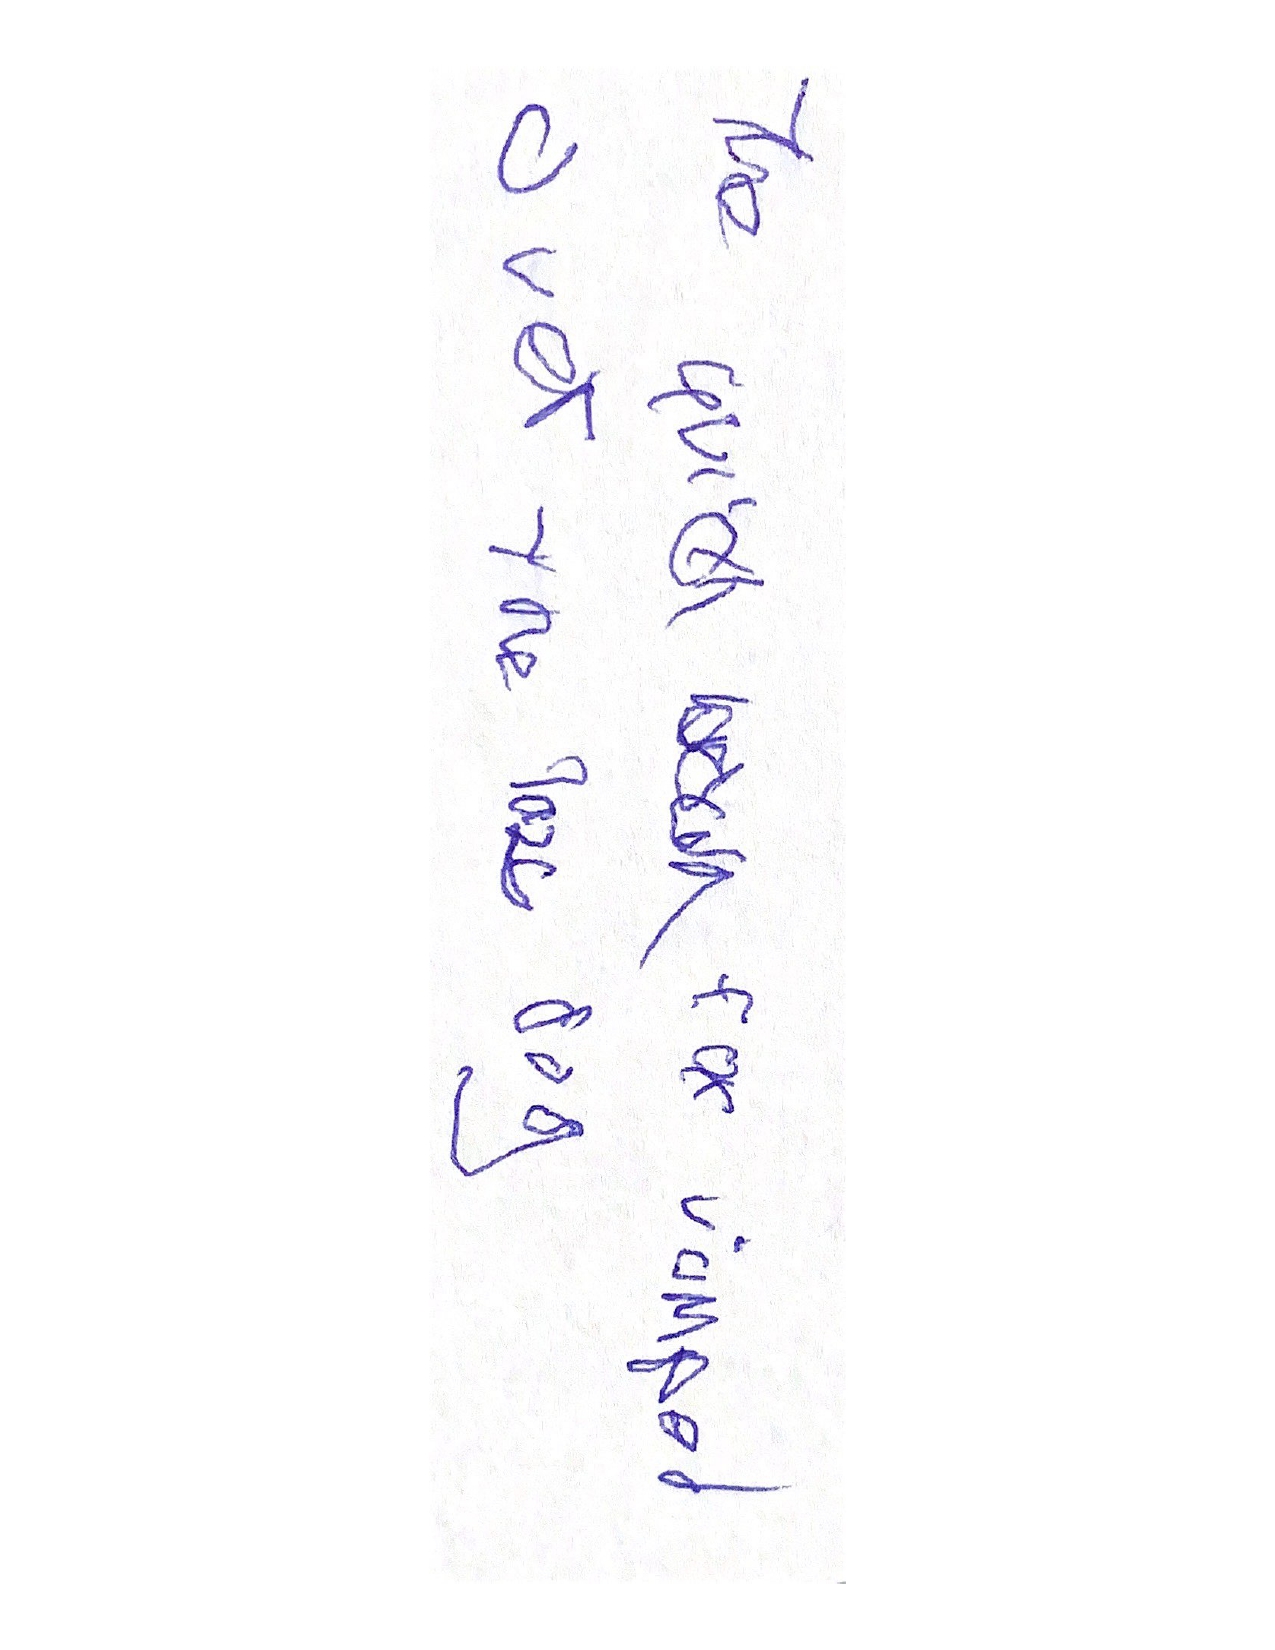 The quick brown fox jumped
over the laze dog